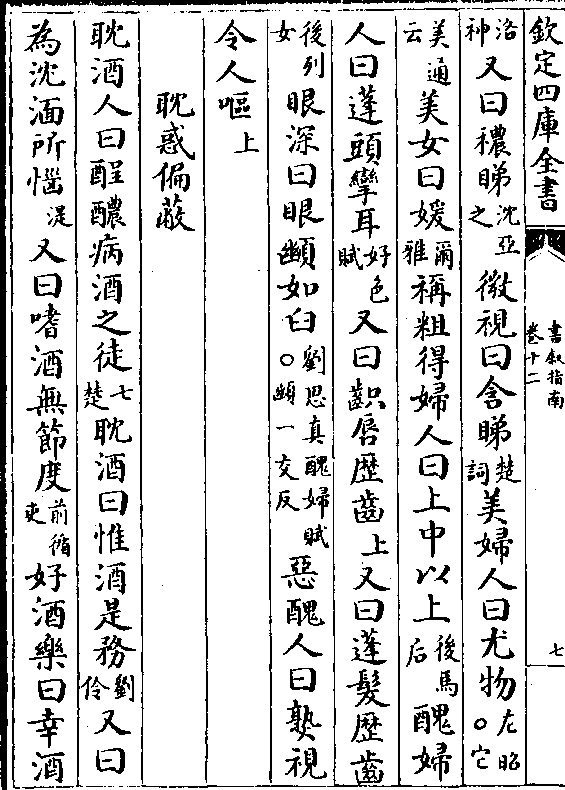 欽定四庫全書
書叙指南
卷十二
七
洛神又曰穠睇沈亞之微視曰含睇楚詞美婦人曰尤物左昭○它
美通云美女曰媛爾雅稱粗得婦人曰上中以上後馬后醜婦
人曰蓬頭攣耳好色賦又曰齞脣歴齒上又曰蓬髮歴齒
後列女眼深曰眼䫜如臼劉思真醜婦賦○䫜一交反惡醜人曰孰視
令人嘔上
耽惑偏蔽
耽酒人曰酲醲病酒之徒七楚耽酒曰惟酒是務劉伶又曰
為沈湎所惱湜又曰嗜酒無節度前循吏好酒樂曰幸酒